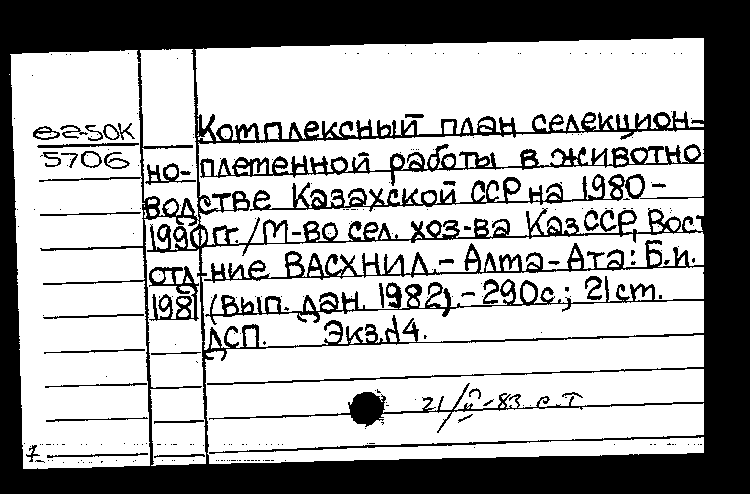 е2-50К
5706
Комплексный план селекцион-
но-племенной работы в животно
водстве Казахской ССР на 1980-
1990 гг. /М-во сел. хоз-ва КазССР, Вост
отд-ние ВАСХНИЛ.- Алма-Ата: Б.и.
1981 (вып. дан. 1982).- 290с.; 21 см.
ДСП. Экз.
21/II-83 с.т.